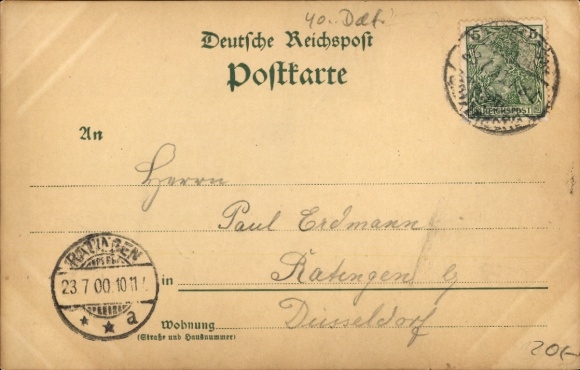 40.
Deutsche Reichspost
Postkarte
REICHSPOST
An
Herrn
Paul Erdmann
RATINGEN
23.7.00.10-11
* * a
in Ratingen b/
Düsseldorf
Wohnung
(Straße und Hausnummer)
20,-